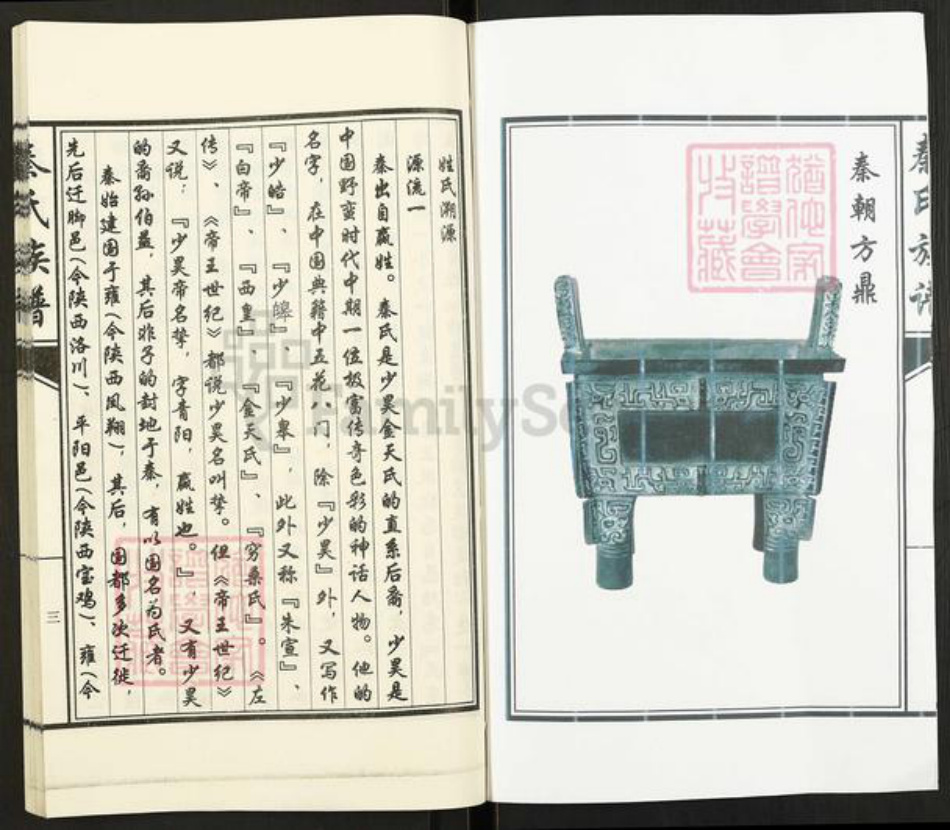 秦氏族谱
秦朝方鼎
姓氏溯源
源流一
秦出自嬴姓。秦氏是少昊金天氏的直系后裔，少昊是
中国野蛮时代中期一位极富传奇色彩的神话人物。他的
名字，在中国典籍中五花八门，除『少昊』外，又写作
『少皓』、『少皞』、『少皋』，此外又称『朱宣』、
『白帝』、『西皇』、『金天氏』、『穷桑氏』。《左
传》、《帝王世纪》都说少昊名叫挚。但《帝王世纪》
又说：『少昊帝名挚，字青阳，嬴姓也。』，又有少昊
的裔孙伯益，其后非子的封地于秦，有以国名为氏者。
秦始建国于雍（今陕西凤翔），其后，国都多次迁徙，
先后迁脚邑（今陕西洛川）、平阳邑（今陕西宝鸡）、雍（今
秦氏族谱
三
FamilySe